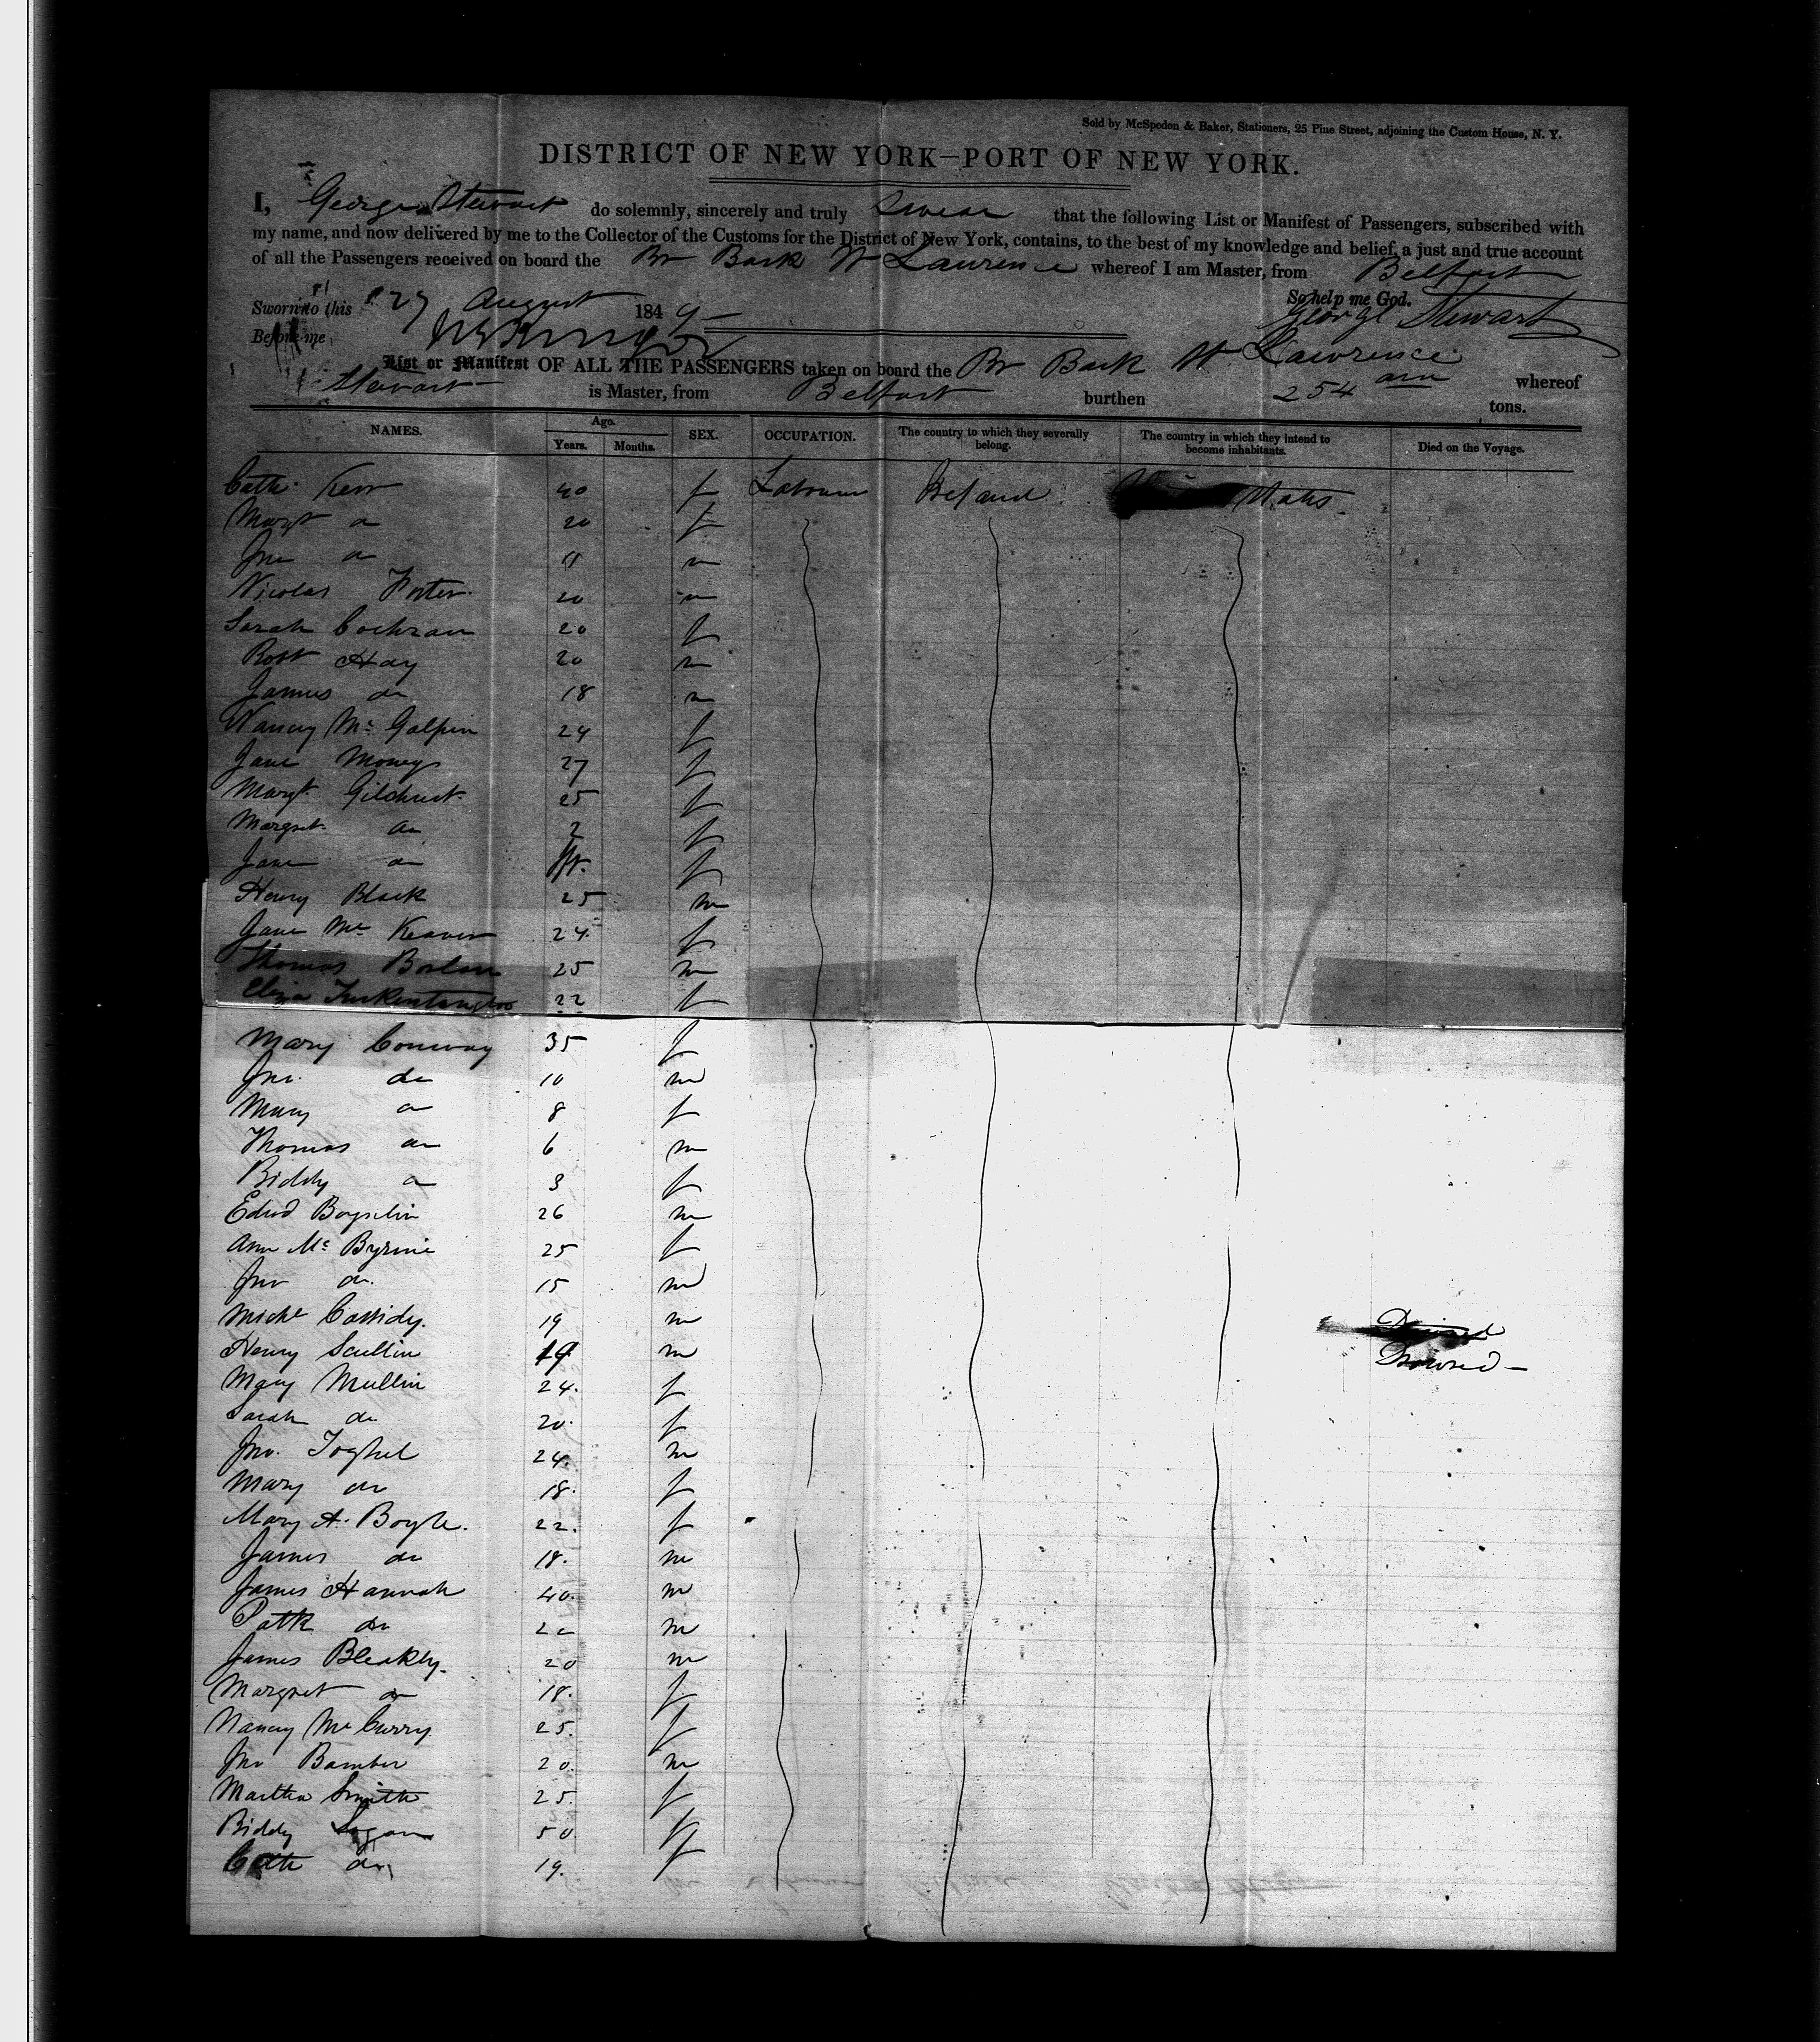 Sold by McSpedon & Baker, Stationers, 25 Pine Street, adjoining the Custom House, N. Y.
DISTRICT OF NEW YORK—PORT OF NEW YORK.
I, George Stewart do solemnly, sincerely and truly Swear that the following List or Manifest of Passengers, subscribed with
my name, and now delivered by me to the Collector of the Customs for the District of New York, contains, to the best of my knowledge and belief, a just and true account
of all the Passengers received on board the Br Bark St Lawrence whereof I am Master, from Belfast
So help me God.
Sworn to this 27 August 1849 George Stewart
Before me
List or Manifest OF ALL THE PASSENGERS taken on board the Br Bark St Lawrence whereof
Stewart is Master, from Belfast burthen 254 tons.
NAMES. Age. Years. Months. SEX. OCCUPATION. The country to which they severally belong. The country in which they intend to become inhabitants. Died on the Voyage.
Cath. Kerr 40 f States
Margt do 20 f
Jno do 11 m
Nicolas 20 m
Sarah Cochran 20 f
Robt Hay 20 m
James do 18 m
Nancy Mc Galpin 24 f
Jane 27 f
Margt Gilchrist 25 f
Margret do 2 f
Jane do f
Henry Black 25 m
Jane Mc 24 f
Thomas 25 m
Eliza 22 f
Mary Conway 35 f
Jno. do 10 m
Mary do 8 f
Thomas do 6 m
Biddy do 3 f
Edwd 26 m
Ann Mc 25 f
Jno do 15 m
Michl Cassidy. 19 m
Henry Scullin 19 m Drowned
Mary Mullin 24. f
Sarah do 20. f
Jno. 24. m
Mary do 18. f
Mary A. Boyle. 22. f
James do 18. m
James Hannah 40. m
Patk do m
James Bleakly. 20 m
Margret do 18. f
Nancy Mc Curry. 25. f
Jno Bamber 20. m
Martha Smith 25. f
Biddy Logan 50. f
Cath do 19. f